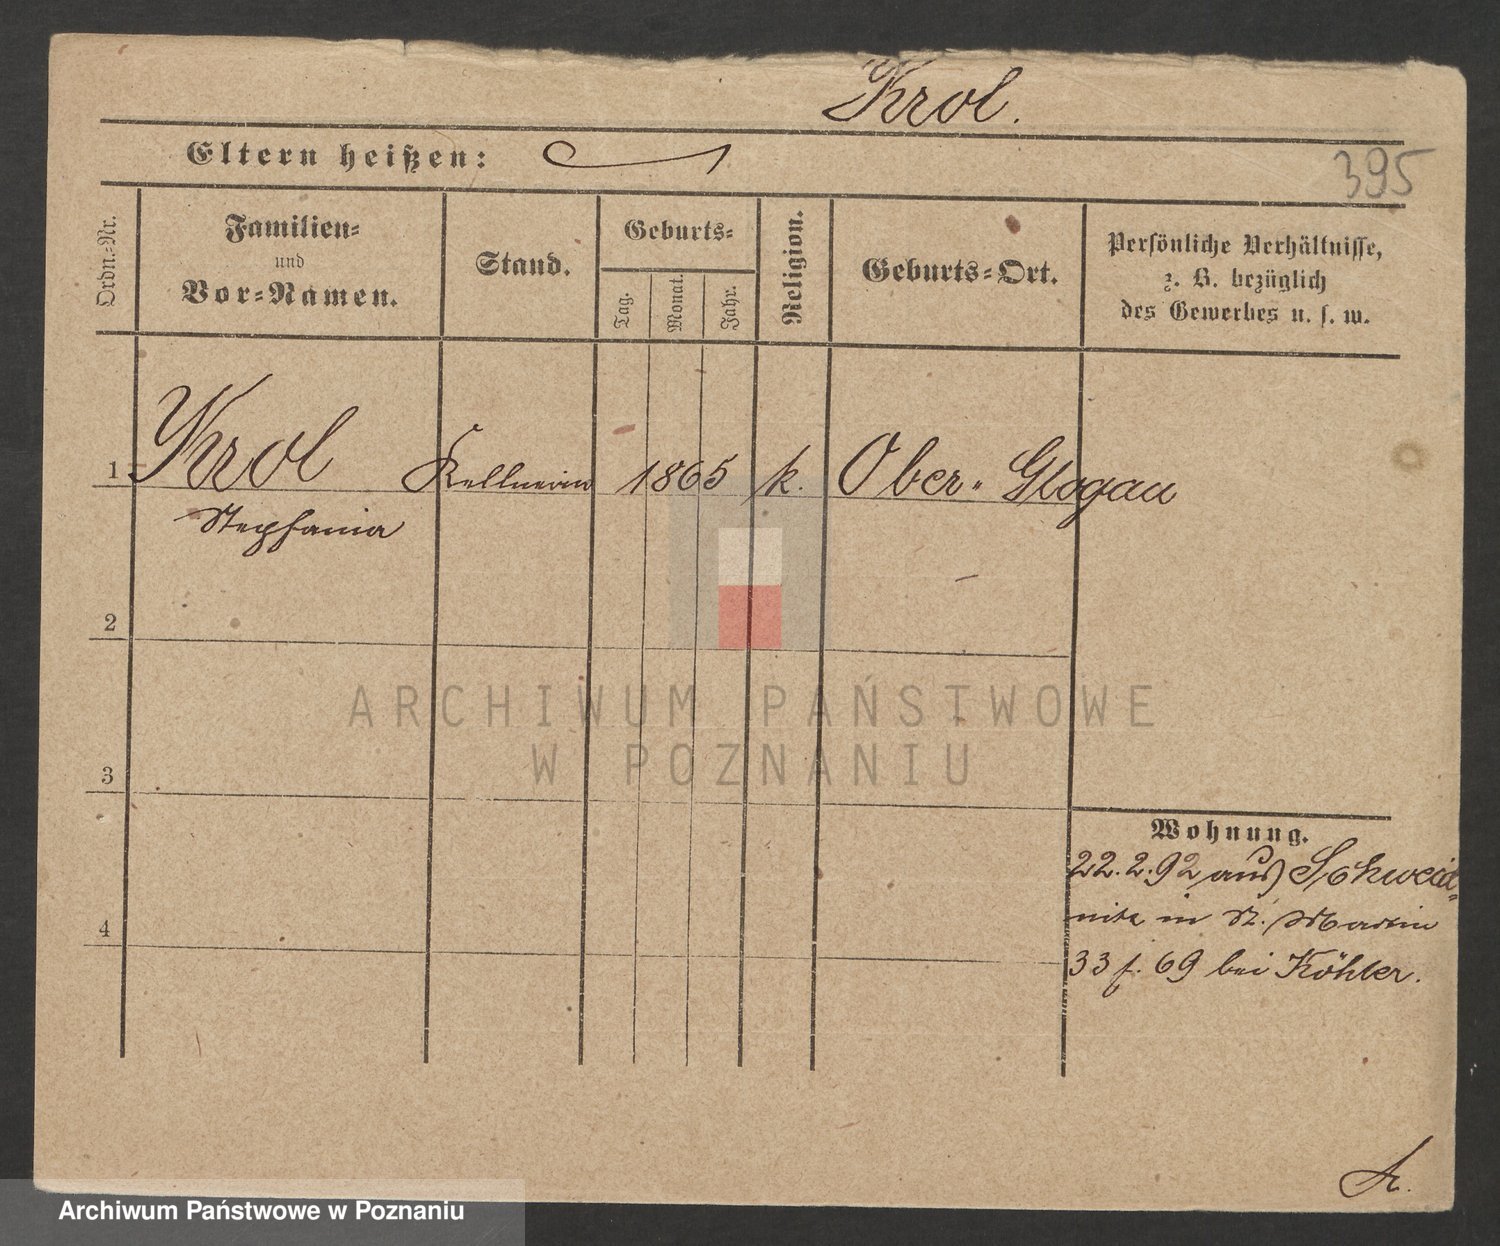 Krol.
Eltern heißen:
395
Ordn.-Nr.
Familien-
und
Vor-Namen.
Stand.
Geburts-
Tag.
Monat.
Jahr.
Religion.
Geburts-Ort.
Persönliche Verhältnisse,
z. B. bezüglich
des Gewerbes u. s. w.
1 Krol Kellnerin 1865 k. Ober-Glogau
Stephania
2
ARCHIWUM PAŃSTWOWE
W POZNANIU
3
Wohnung.
22.2.92 aus Schweid-
nitz in St. Martin
33 f. 69 bei Köhler.
4
Archiwum Państwowe w Poznaniu